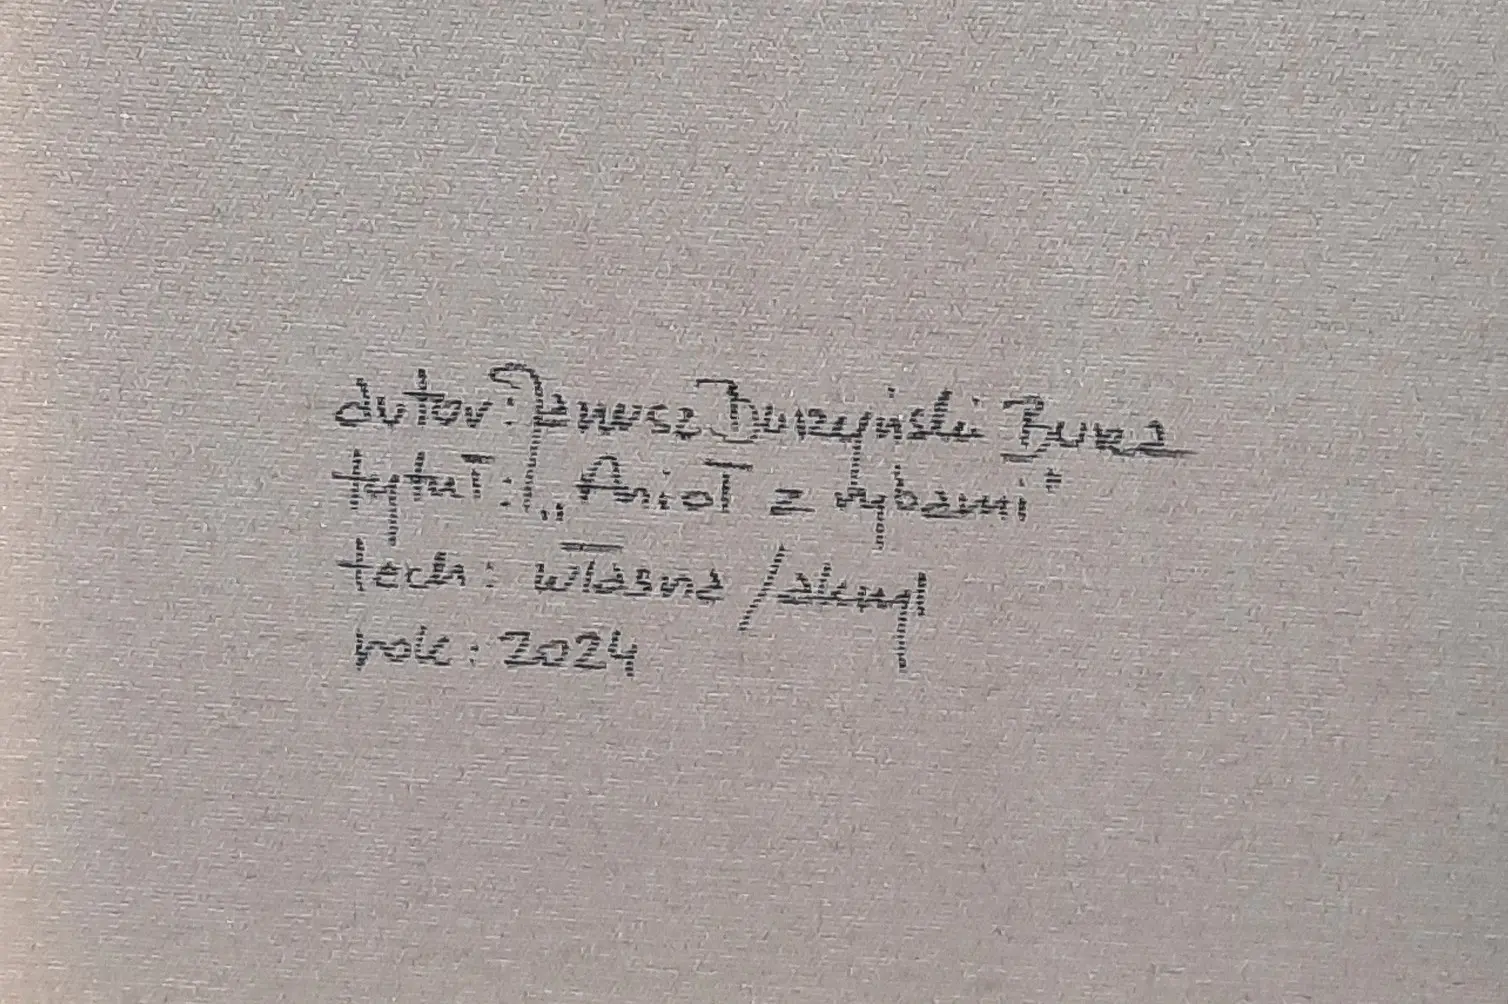 autor: Janusz Burzyński Burza
tytuł: „Anioł z rybami"
tech: własna /akryl
rok: 2024